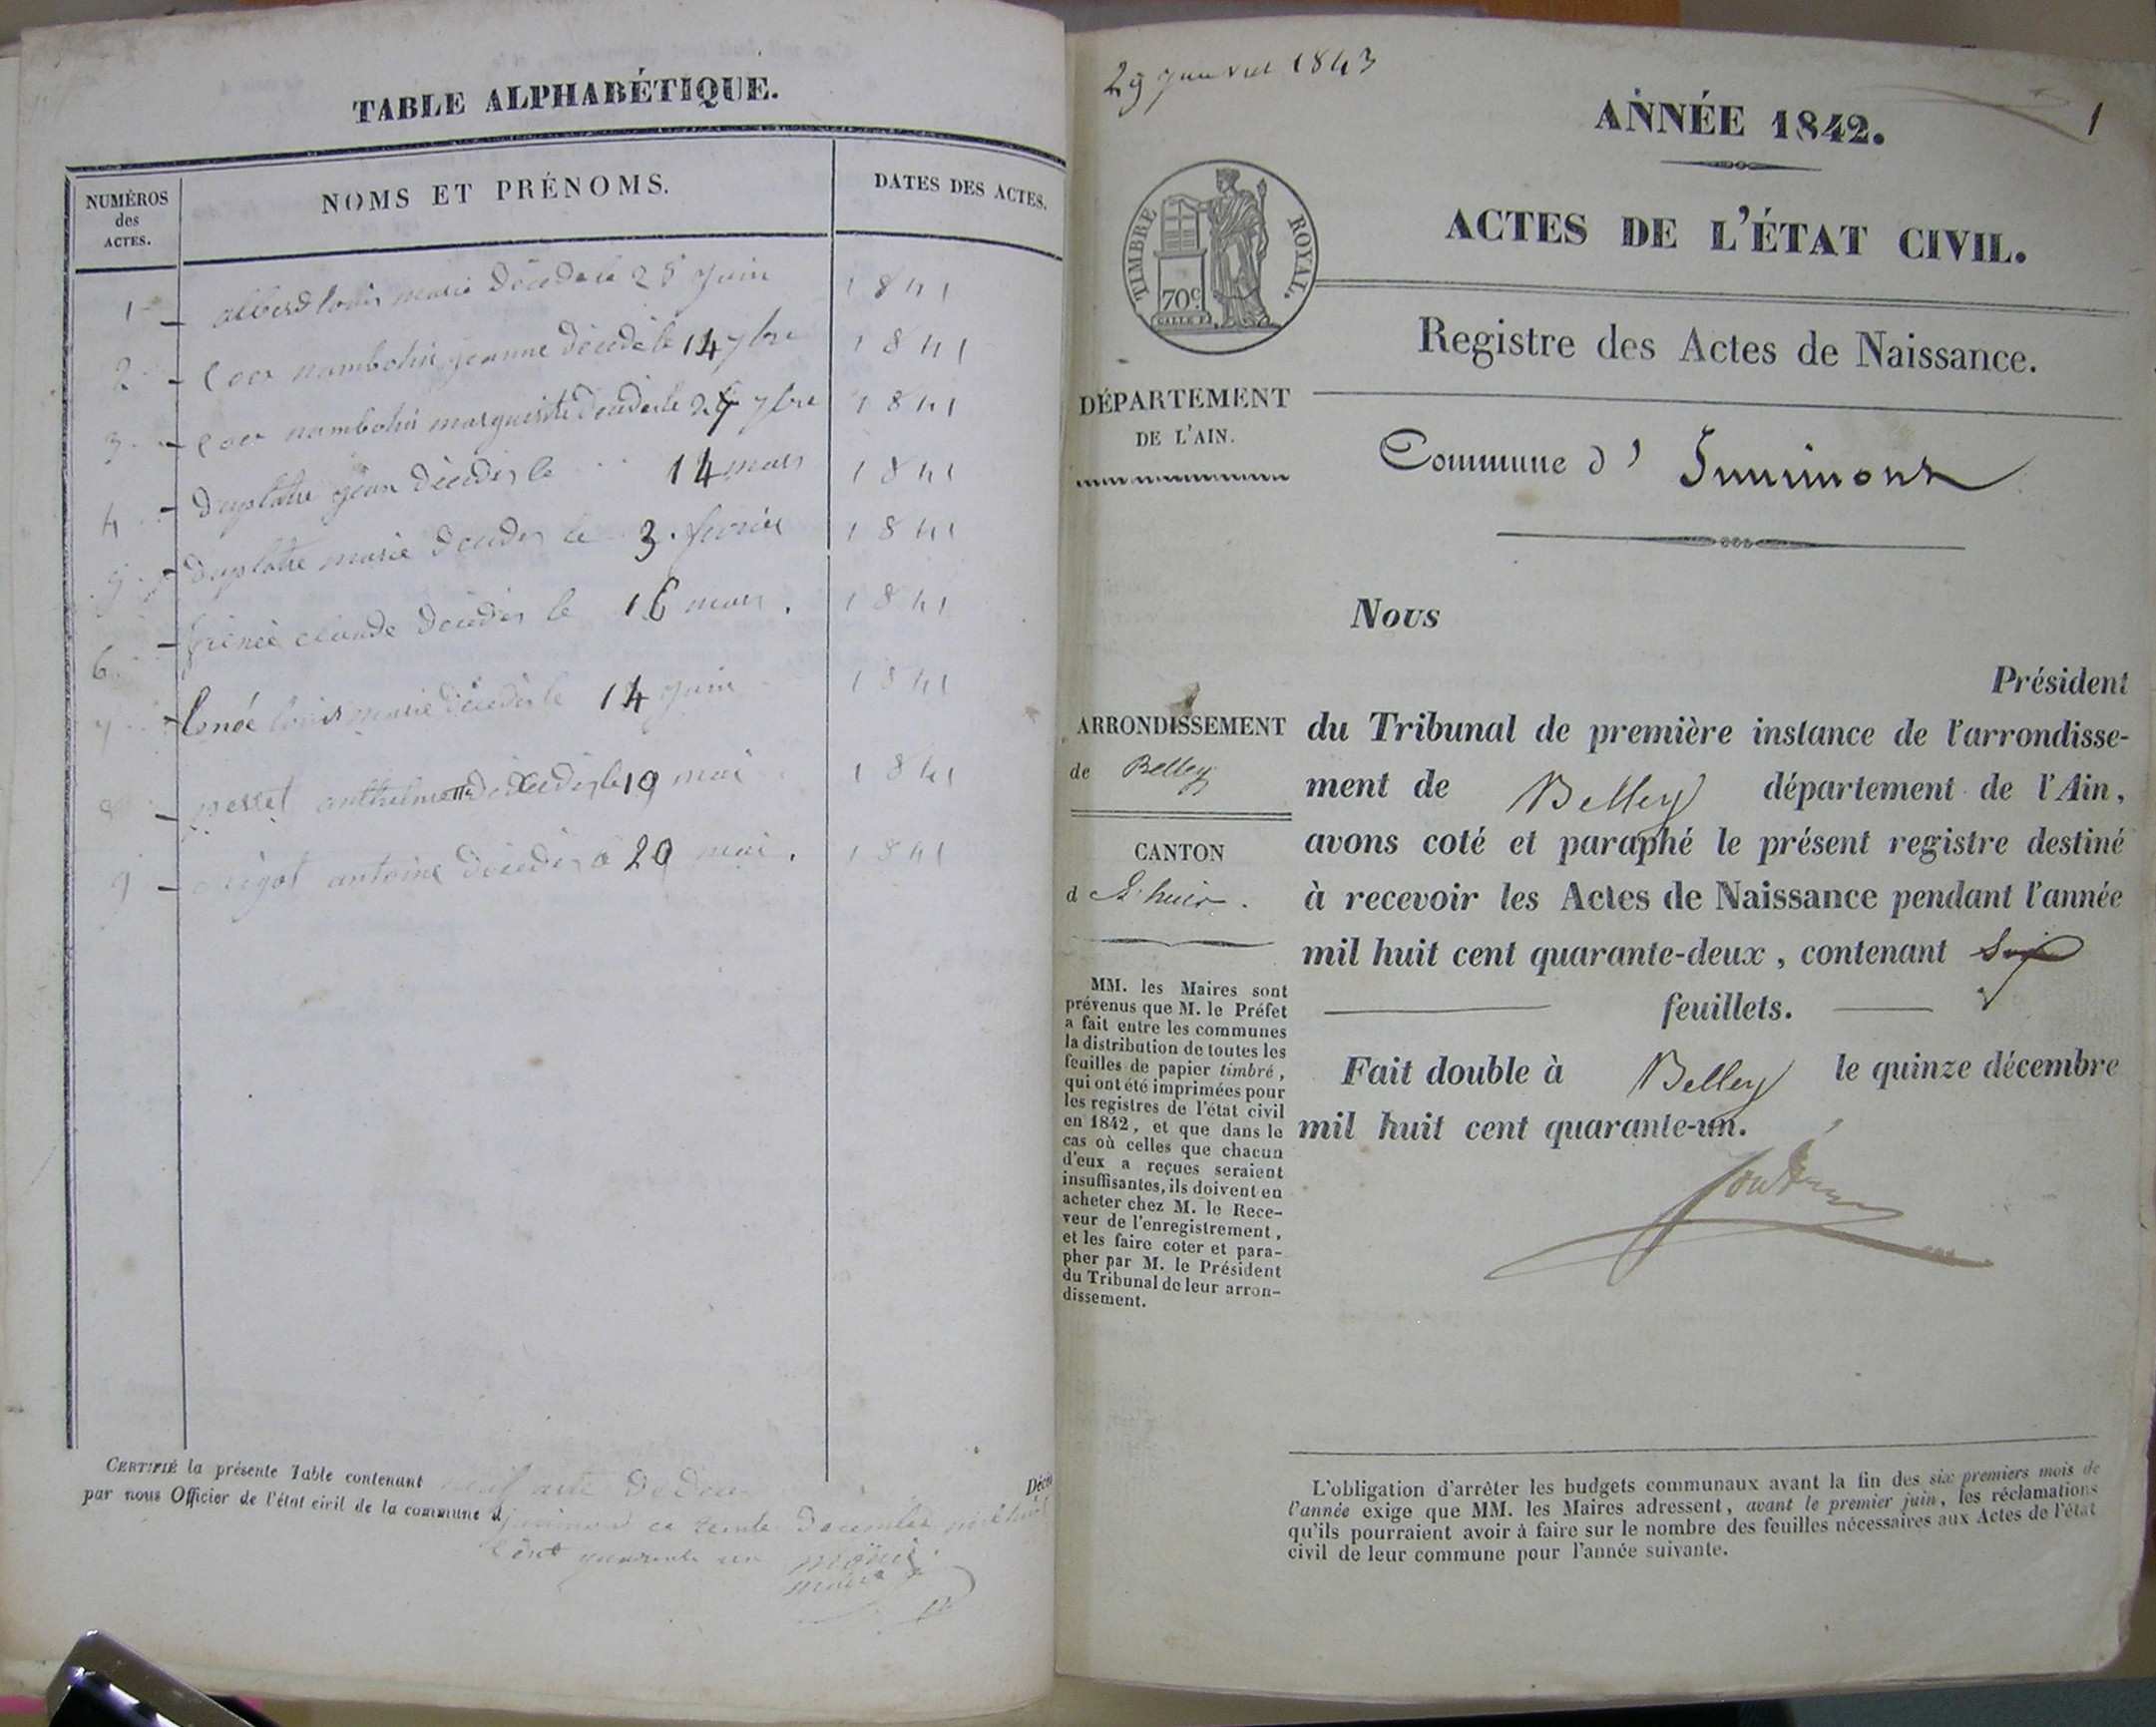 TABLE ALPHABÉTIQUE.
NUMÉROS
des
ACTES.
NOMS ET PRÉNOMS.
DATES DES ACTES.
1 louis marie décédé le 25 juin 1841
2 jeanne décédé le 14 7bre 1841
3 marguerite décédé le 7bre 1841
4 jean décédé le 14 mars 1841
5 marie décédé le 3. février 1841
6 claude décédé le 16 mars. 1841
7 louis marie décédé le 14 juin 1841
8 perret mai 1841
9 antoine mai. 1841
CERTIFIÉ la présente Table contenant neuf acte
par nous Officier de l'état civil de la commune d ce trente décembre mil huit
cent quarante un
maire
29 janvier 1843
1
ANNÉE 1842.
ACTES DE L'ÉTAT CIVIL.
TIMBRE ROYAL.
70c
Registre des Actes de Naissance.
DÉPARTEMENT
DE L'AIN.
Commune d'
Nous
Président
ARRONDISSEMENT
de Belley
CANTON
d
du Tribunal de première instance de l'arrondisse-
ment de Belley département de l'Ain,
avons coté et paraphé le présent registre destiné
à recevoir les Actes de Naissance pendant l'année
mil huit cent quarante-deux, contenant Six
feuillets.
Fait double à Belley le quinze décembre
mil huit cent quarante-un.
MM. les Maires sont
prévenus que M. le Préfet
a fait entre les communes
la distribution de toutes les
feuilles de papier timbré,
qui ont été imprimées pour
les registres de l'état civil
en 1842, et que dans le
cas où celles que chacun
d'eux a reçues seraient
insuffisantes, ils doivent en
acheter chez M. le Rece-
veur de l'enregistrement,
et les faire coter et para-
pher par M. le Président
du Tribunal de leur arron-
dissement.
L'obligation d'arrêter les budgets communaux avant la fin des six premiers mois de
l'année exige que MM. les Maires adressent, avant le premier juin, les réclamations
qu'ils pourraient avoir à faire sur le nombre des feuilles nécessaires aux Actes de l'état
civil de leur commune pour l'année suivante.